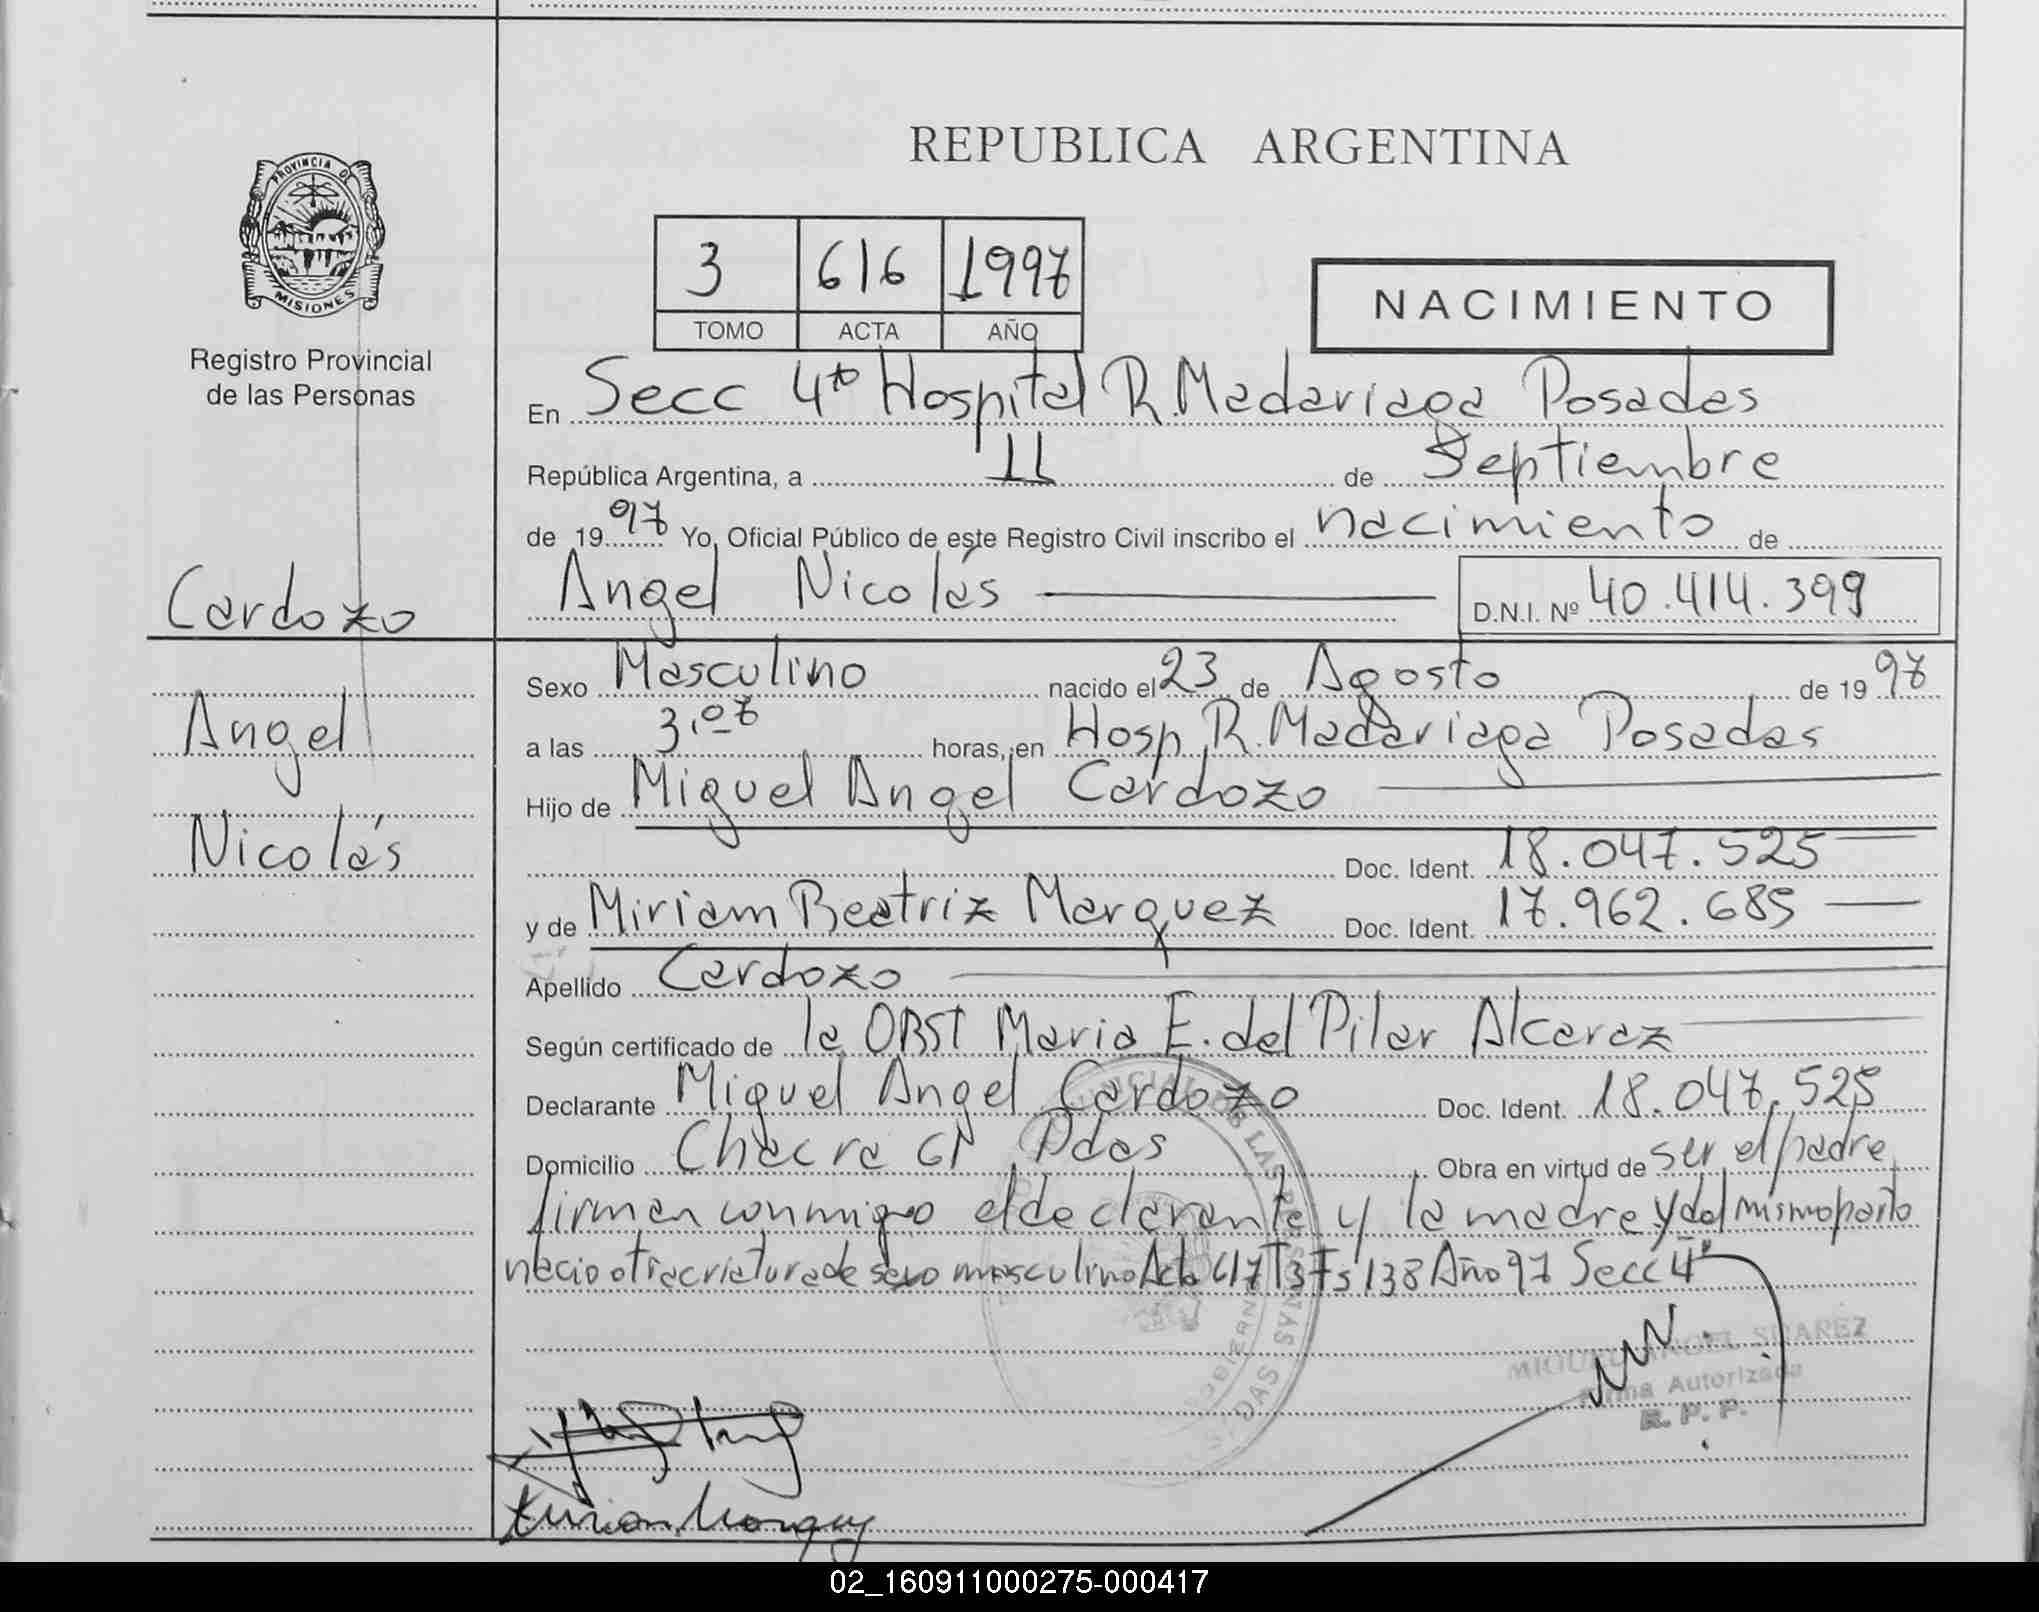 REPUBLICA ARGENTINA
PROVINCIA DE
MISIONES
Registro Provincial
de las Personas
3 616 1997
TOMO ACTA AÑO
NACIMIENTO
En Secc 4ta Hospital R. Madariaga Posadas
República Argentina, a 11 de Septiembre
de 1997 Yo, Oficial Público de este Registro Civil inscribo el nacimiento de
Angel Nicolás D.N.I. Nº 40.414.399
Cardozo
Angel
Nicolás
Sexo Masculino nacido el 23 de Agosto de 1997
a las 3,07 horas, en Hosp. R. Madariaga Posadas
Hijo de Miguel Angel Cardozo
Doc. Ident. 18.047.525
y de Miriam Beatriz Marquez Doc. Ident. 17.962.685
Apellido Cardozo
Según certificado de la OBST Maria E. del Pilar Alcaraz
Declarante Miguel Angel Cardozo Doc. Ident. 18.047.525
Domicilio Chacra Pdas Obra en virtud de ser el padre
firman conmigo el declarante y la madre y del mismo parto
nacio otra criatura de sexo masculino Acta 617 T3 Fs 138 Año 97 Secc 4ª
MIGUEL ANGEL SUAREZ
Firma Autorizada
R. P. P.
02_160911000275-000417